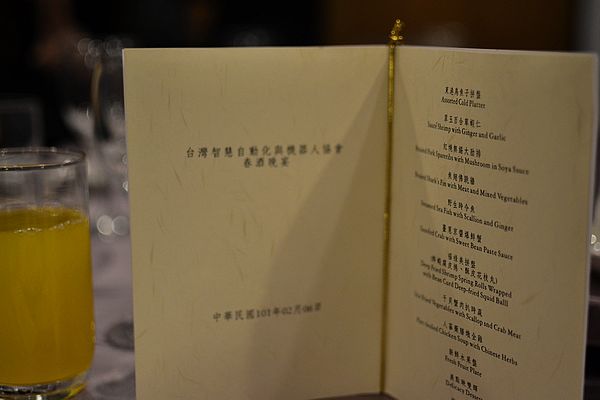 台灣智慧自動化與機器人協會
春酒晚宴
中華民國101年02月06日
東港烏魚子拼盤
Assorted Cold Platter
Sauteed Shrimp with Ginger and Garlic
Braised Pork Spareribs with Mushroom in Soya Sauce
Braised Shark's Fin with Meat and Mixed Vegetables
野生時令魚
Steamed Sea Fish with Scallion and Ginger
Sauteed Crab with Sweet Bean Paste Sauce
Deep-Fried Shrimp Spring Rolls Wrapped
with Bean Curd Deep-fried Squid Balll
干貝蟹肉扒時蔬
Vegetables with Scallop and Crab Meat
Chicken Soup with Chinese Herbs
新鮮水果盤
Fresh Fruit Plate
美點映雙輝
Delicacy Dessert